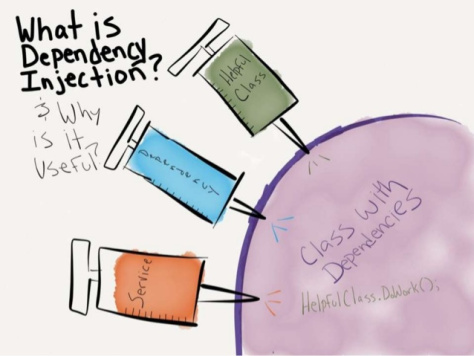 What is
Dependency
Injection?
& Why
is it
Useful?
Helpful
Class
Service
Class with
Dependencies
HelpfulClass.DoWork();